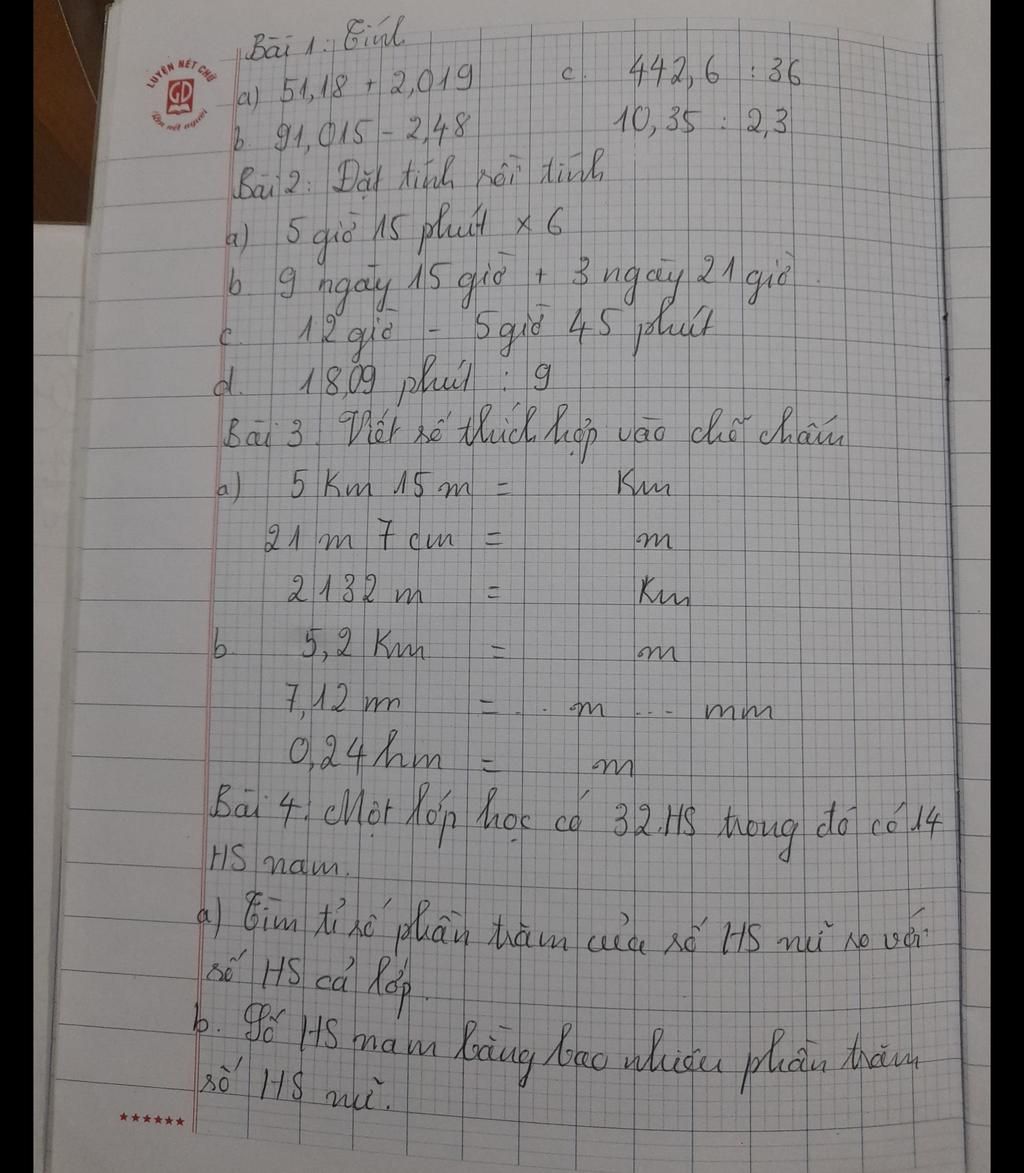 Bài 1: Tính
LUYỆN NÉT CHỮ
GD
Rèn nết người
a) 51,18 + 2,019 c. 442,6 : 36
b. 91,015 - 2,48 10,35 : 2,3
Bài 2: Đặt tính rồi tính
a) 5 giờ 15 phút × 6
b. 9 ngày 15 giờ + 3 ngày 21 giờ.
c. 12 giờ - 5 giờ 45 phút
d. 18,09 phút : 9
Bài 3. Viết số thích hợp vào chỗ chấm
a) 5 Km 15 m = Km
21 m 7 cm = m
2132 m = Km
b. 5,2 Km = m
7,12 m = .. m ... mm
0,24 hm = m
Bài 4: Một lớp học có 32 HS trong đó có 14
HS nam.
a) Tìm tỉ số phần trăm của số HS nữ so với
số HS cả lớp.
b. Số HS nam bằng bao nhiêu phần trăm
số HS nữ.